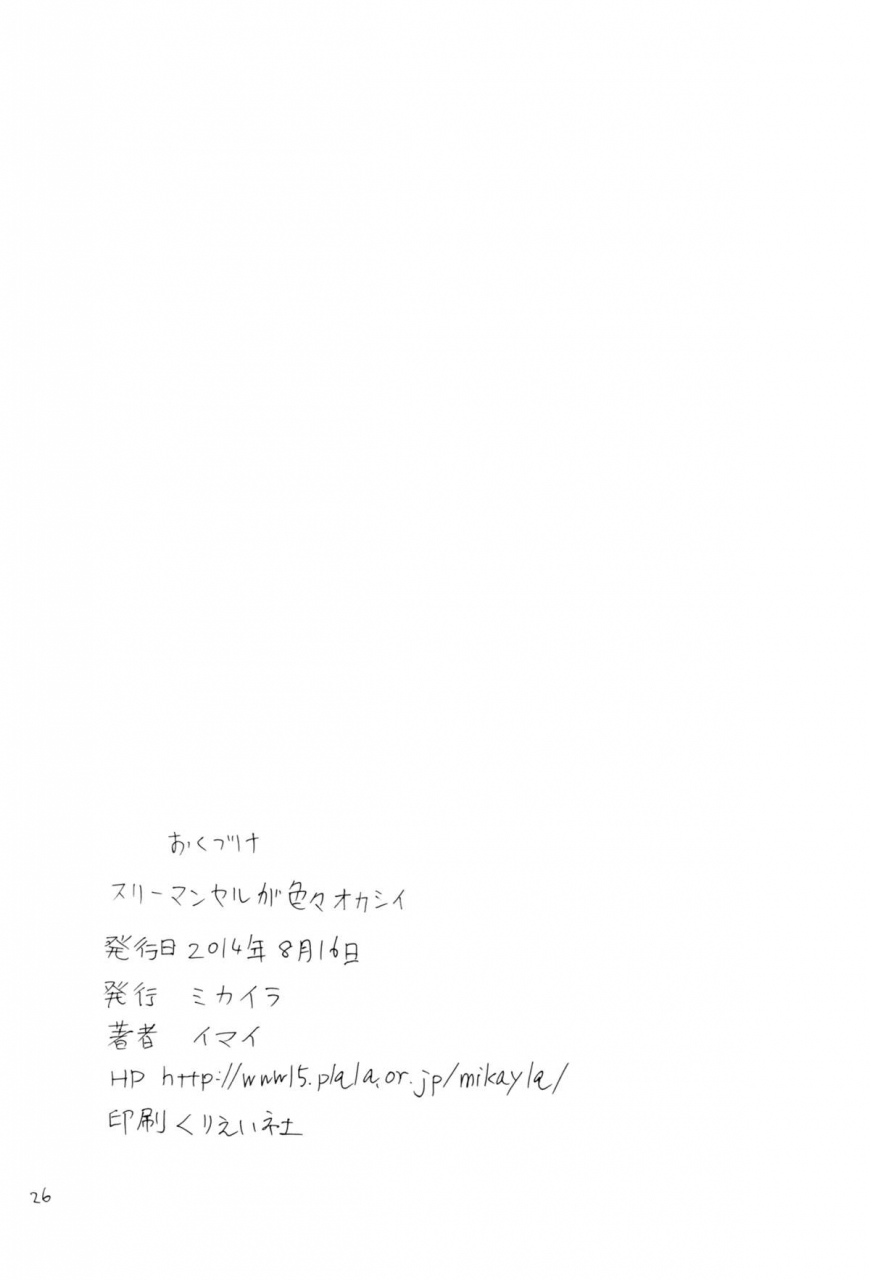 おくづけ
スリーマンセルが色々オカシイ
発行日 2014年 8月16日
発行 ミカイラ
著者 イマイ
HP http://www15.plala.or.jp/mikayla/
印刷 くりえい社
26